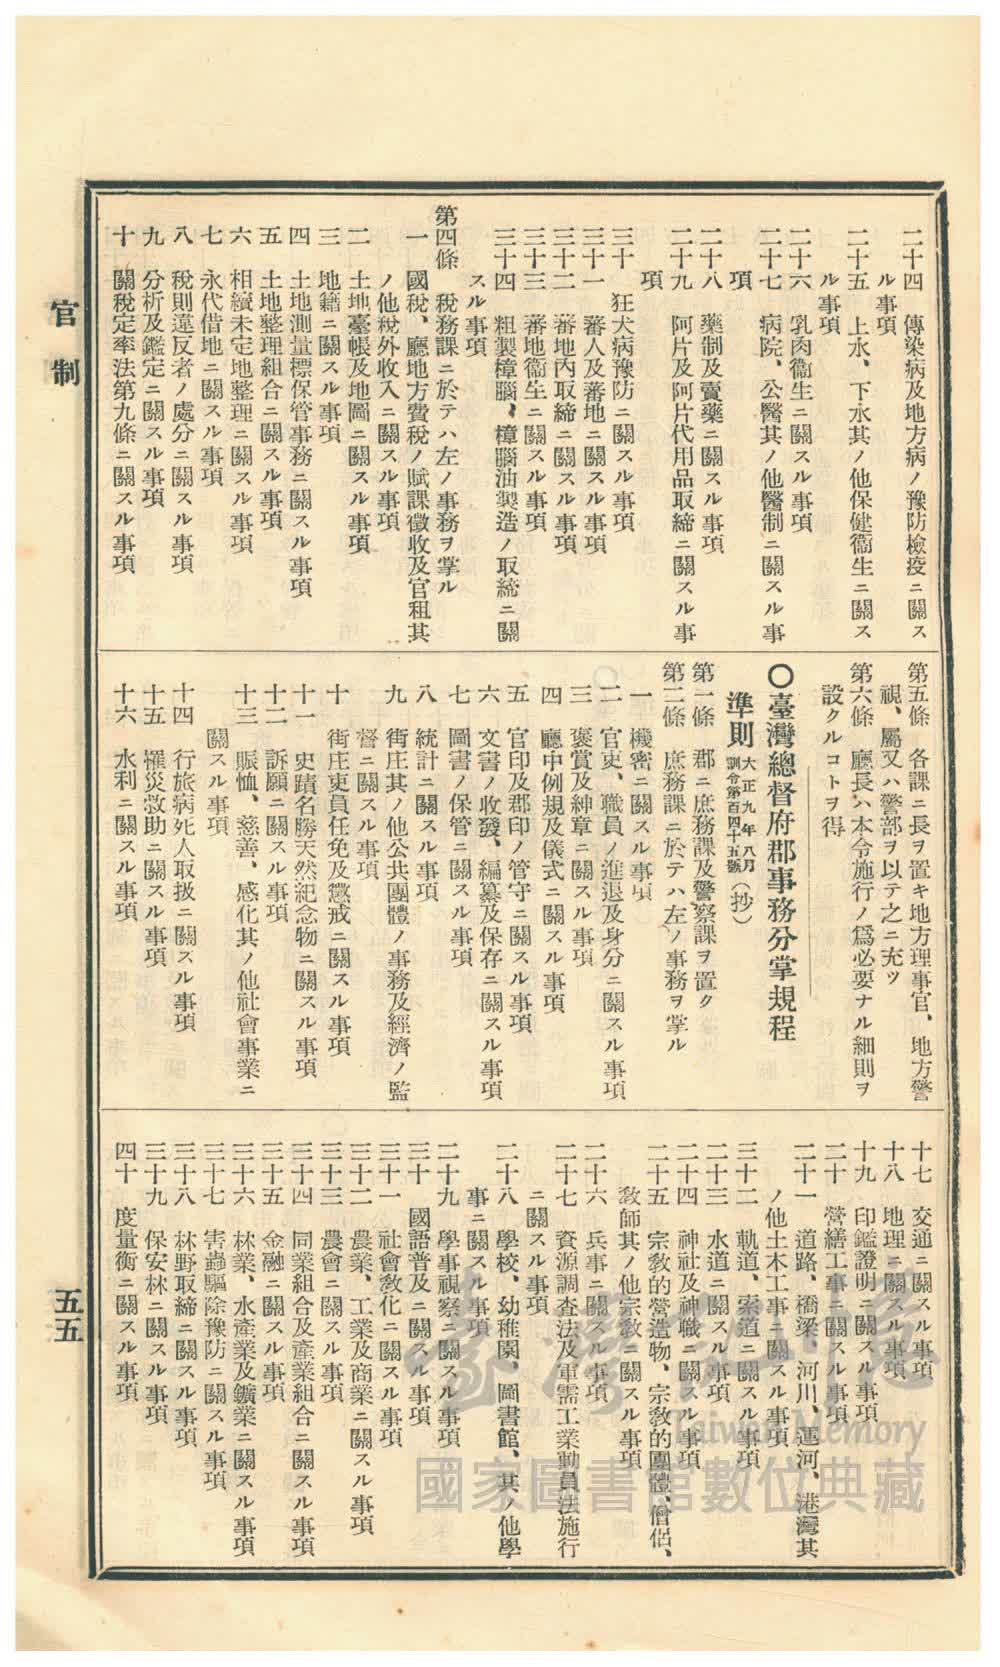 官制
二十四 傳染病及地方病ノ豫防檢疫ニ關ス
ル事項
二十五 上水、下水其ノ他保健衞生ニ關ス
ル事項
二十六 乳肉衞生ニ關スル事項
二十七 病院、公醫其ノ他醫制ニ關スル事
項
二十八 藥制及賣藥ニ關スル事項
二十九 阿片及阿片代用品取締ニ關スル事
項
三十 狂犬病豫防ニ關スル事項
三十一 蕃人及蕃地ニ關スル事項
三十二 蕃地內取締ニ關スル事項
三十三 蕃地衞生ニ關スル事項
三十四 粗製樟腦、樟腦油製造ノ取締ニ關
スル事項
第四條 稅務課ニ於テハ左ノ事務ヲ掌ル
一 國稅、廳地方費稅ノ賦課徵收及官租其
ノ他稅外收入ニ關スル事項
二 土地臺帳及地圖ニ關スル事項
三 地籍ニ關スル事項
四 土地測量標保管事務ニ關スル事項
五 土地整理組合ニ關スル事項
六 相續未定地整理ニ關スル事項
七 永代借地ニ關スル事項
八 稅則違反者ノ處分ニ關スル事項
九 分析及鑑定ニ關スル事項
十 關稅定率法第九條ニ關スル事項
第五條 各課ニ長ヲ置キ地方理事官、地方警
視、屬又ハ警部ヲ以テ之ニ充ツ
第六條 廳長ハ本令施行ノ爲必要ナル細則ヲ
設クルコトヲ得
〇臺灣總督府郡事務分掌規程
準則 大正九年八月訓令第百四十五號(抄)
第一條 郡ニ庶務課及警察課ヲ置ク
第二條 庶務課ニ於テハ左ノ事務ヲ掌ル
一 機密ニ關スル事項
二 官吏、職員ノ進退及身分ニ關スル事項
三 褒賞及紳章ニ關スル事項
四 廳中例規及儀式ニ關スル事項
五 官印及郡印ノ管守ニ關スル事項
六 文書ノ收發、編纂及保存ニ關スル事項
七 圖書ノ保管ニ關スル事項
八 統計ニ關スル事項
九 街庄其ノ他公共團體ノ事務及經濟ノ監
督ニ關スル事項
十 街庄吏員任免及懲戒ニ關スル事項
十一 史蹟名勝天然紀念物ニ關スル事項
十二 訴願ニ關スル事項
十三 賑恤、慈善、感化其ノ他社會事業ニ
關スル事項
十四 行旅病死人取扱ニ關スル事項
十五 罹災救助ニ關スル事項
十六 水利ニ關スル事項
十七 交通ニ關スル事項
十八 地理ニ關スル事項
十九 印鑑證明ニ關スル事項
二十 營繕工事ニ關スル事項
二十一 道路、橋梁、河川、運河、港灣其
ノ他土木工事ニ關スル事項
三十二 軌道、索道ニ關スル事項
二十三 水道ニ關スル事項
二十四 神社及神職ニ關スル事項
二十五 宗敎的營造物、宗敎的團體、僧侶、
敎師其ノ他宗敎ニ關スル事項
二十六 兵事ニ關スル事項
二十七 資源調査法及軍需工業動員法施行
ニ關スル事項
二十八 學校、幼稚園、圖書館、其ノ他學
事ニ關スル事項
二十九 學事視察ニ關スル事項
三十 國語普及ニ關スル事項
三十一 社會敎化ニ關スル事項
三十二 農業、工業及商業ニ關スル事項
三十三 農會ニ關スル事項
三十四 同業組合及產業組合ニ關スル事項
三十五 金融ニ關スル事項
三十六 林業、水產業及鑛業ニ關スル事項
三十七 害蟲驅除豫防ニ關スル事項
三十八 林野取締ニ關スル事項
三十九 保安林ニ關スル事項
四十 度量衡ニ關スル事項
五五
臺灣記憶
Taiwan Memory
國家圖書館數位典藏